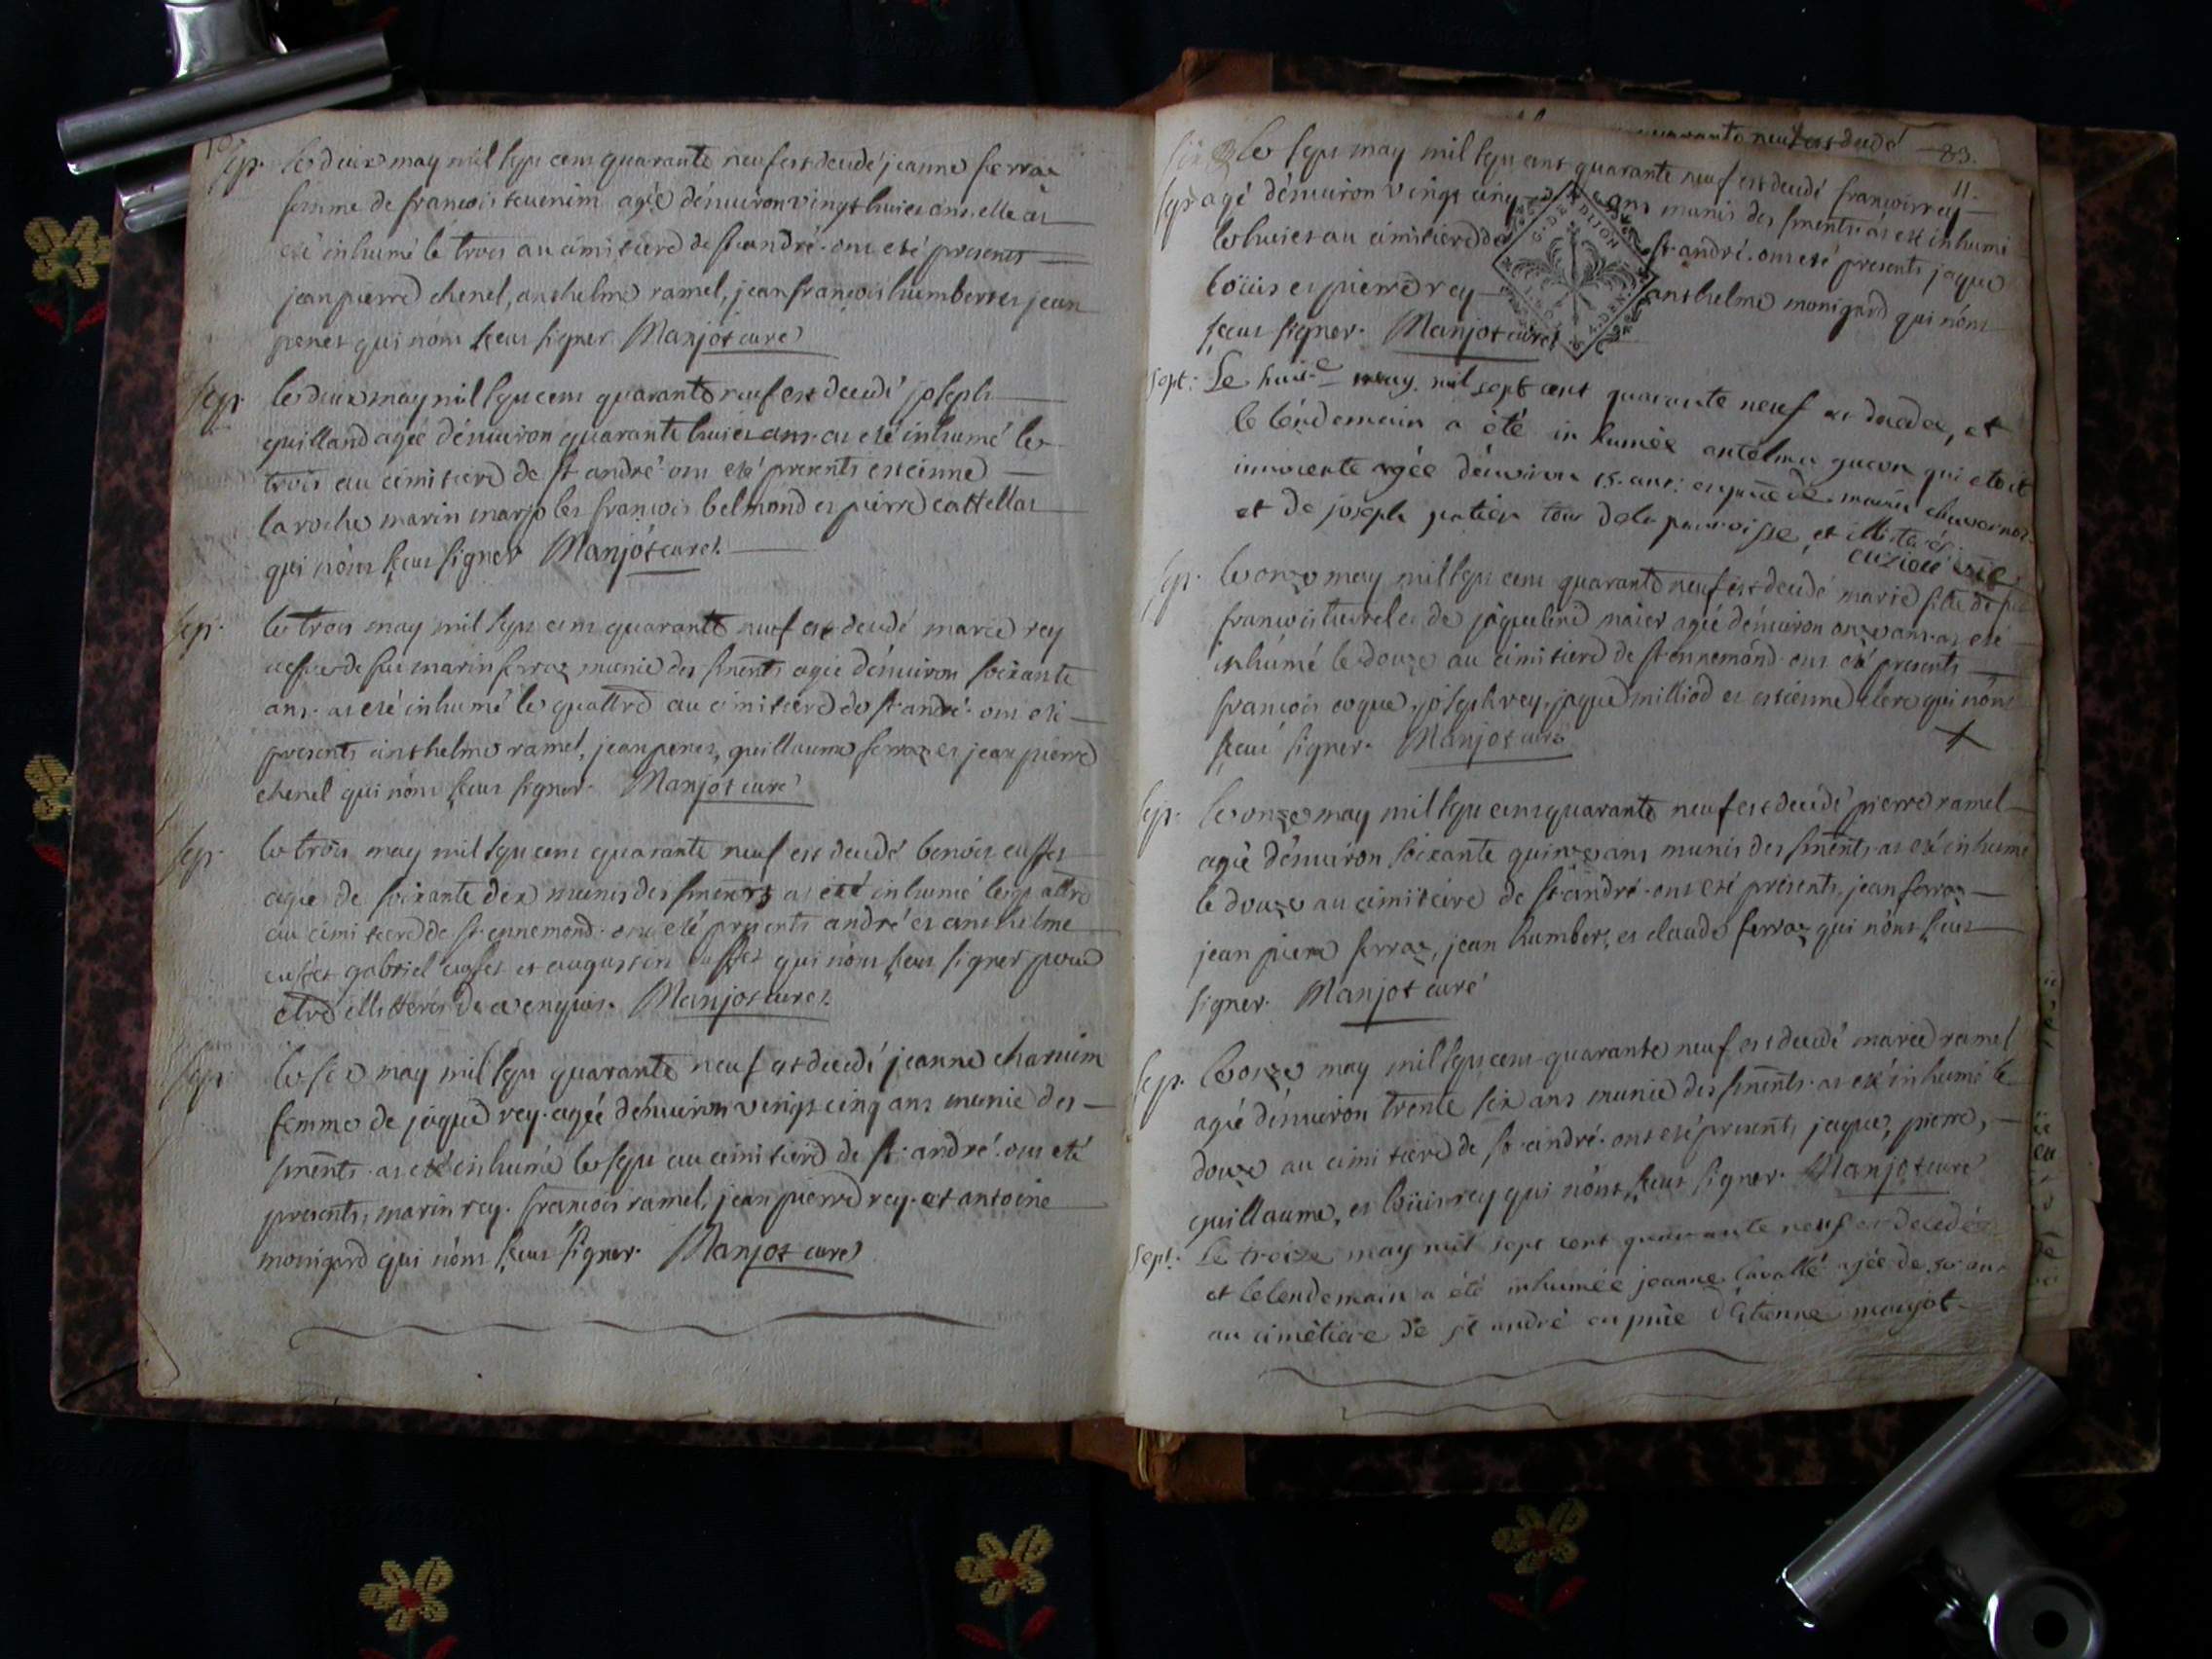 sep. le deux may mil sept cent quarante neuf est decedé jeanne ferraz
femme de francois teuenim agée dénuiron vingt huict ans. elle at
esté inhumé le trois au cimitierre de st andré. ont esté presents
jean pierre chenel, anthelme ramel, jean françois humbert et jean
penet qui nónt sceut signer. Manjot curé
sep. le deux may mil sept cent quarante neuf est decedé joseph
guilland agée dénuiron quarante huict ans. at esté inhumé le
trois au cimitiere de st andré. ont esté presents estienne
laroche marin marjolet françois belmond et pierre cattellat
qui nónt sceut signer Manjot curé.
sep. le trois may mil sept cent quarante neuf est decedé marie rey
uefue de feu marin ferraz munie des sments agée dénuiron soixante
ans. at esté inhumé le quattre au cimitiere de st andré. ont esté
presents anthelme ramel, jean penet, guillaume ferraz et jean pierre
chenel qui nónt sceut signer. Manjot curé
sep. le trois may mil sept cent quarante neuf est decedé benoit cusset
agée de soixante dix munis des sments at esté inhumé le quattre
au cimitiere de st ennemond. ont esté presents andré et anthelme
cusset gabriel cusset et augustin cusset qui nónt sceut signer pour
etre illitterés de ce enquis. Manjot curé.
sep. le six may mil sept quarante neuf est decedé jeanne charuim
femme de jaque rey. agée dehnuiron vingt cinq ans munie des
sments. at esté inhumé le sept au cimitiere de st. andré. ont eté
presents, marin rey. francois ramel, jean pierre rey. et antoine
monigard qui nónt sceut signer. Manjot curé
quarante neuf est decedé 83.
11.
le sept may mil sept cent quarante neuf est decedé francois rey
sep. agé dénuiron vingt cinq ans munis des sments. at esté inhumé
le huict au cimitiere de st. andré. ont esté presents jaque
loüis et pierre rey anthelme monigard qui nónt
sceut signer. Manjot curé
G. DE DIJON
sept: Le huit.e may mil sept cent quarante neuf est decedée, et
le lendemain a été inhumée antelme gucon qui etoit
innocente agée denviron 15. ans: en pnce de
et de joseph tous de la parroisse, et illiterés
sep. le onze may mil sept cent quarante neuf est decedé marie fille de feu
francois et de jaqueline maier agée dénuiron onze ans. at esté
inhúmé le douze au cimitiere de st. ennemond. ont esté presents
francois coque, joseph rey, jaque milliod et estienne clerc qui nónt
sceut signer. Manjot curé
sep. le onze may mil sept cent quarante neuf est decedé pierre ramel
agée dénuiron soixante quinze ans munis des sments. at esté inhumé
le douze au cimitiére de st andré. ont esté présents, jean ferraz
jean piere ferraz, jean humbert, et claude ferraz qui nónt sceut
signer. Manjot curé
sep. le onze may mil sept cent quarante neuf est decedé marie ramel
agée dénuiron trente six ans munie des sments. at esté inhumé le
douze au cimitiere de st. andré. ont esté presents, jaque, pierre,
guillaume, et loüis rey qui nónt sceut signer. Manjot curé
sept. Le treize may mil sept cent quarante neuf est decedée
et le lendemain a été inhumée jeanne lavallé agée de 50 ans
au cimétiere de st andré en pnce d'etienne manjot.